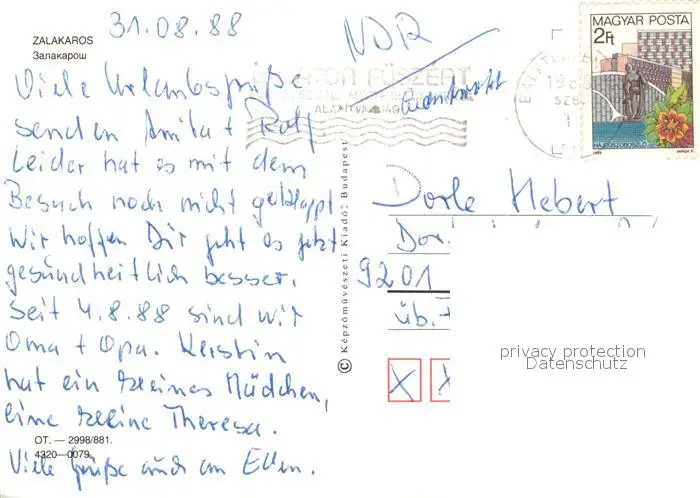 31.08.88
NDR
beantwortet
ZALAKAROS
Залакарош
MAGYAR POSTA
2Ft
HAJDÚSZOBOSZLÓ
Viele Urlaubsgrüße
senden Anita + Ralf
Leider hat es mit dem
Besuch noch nicht geklappt.
Wir hoffen Dir geht es jetzt
gesundheitlich besser.
Seit 4.8.88 sind wir
Oma + Opa. Kerstin
hat ein kleines Mädchen,
eine kleine Theresa.
OT. — 2998/881.
4320—0079
Viele Grüße auch an Ellen.
© Képzőművészeti Kiadó, Budapest
Dorle Hebert
Dor.
9201
üb. F
X X
privacy protection
Datenschutz